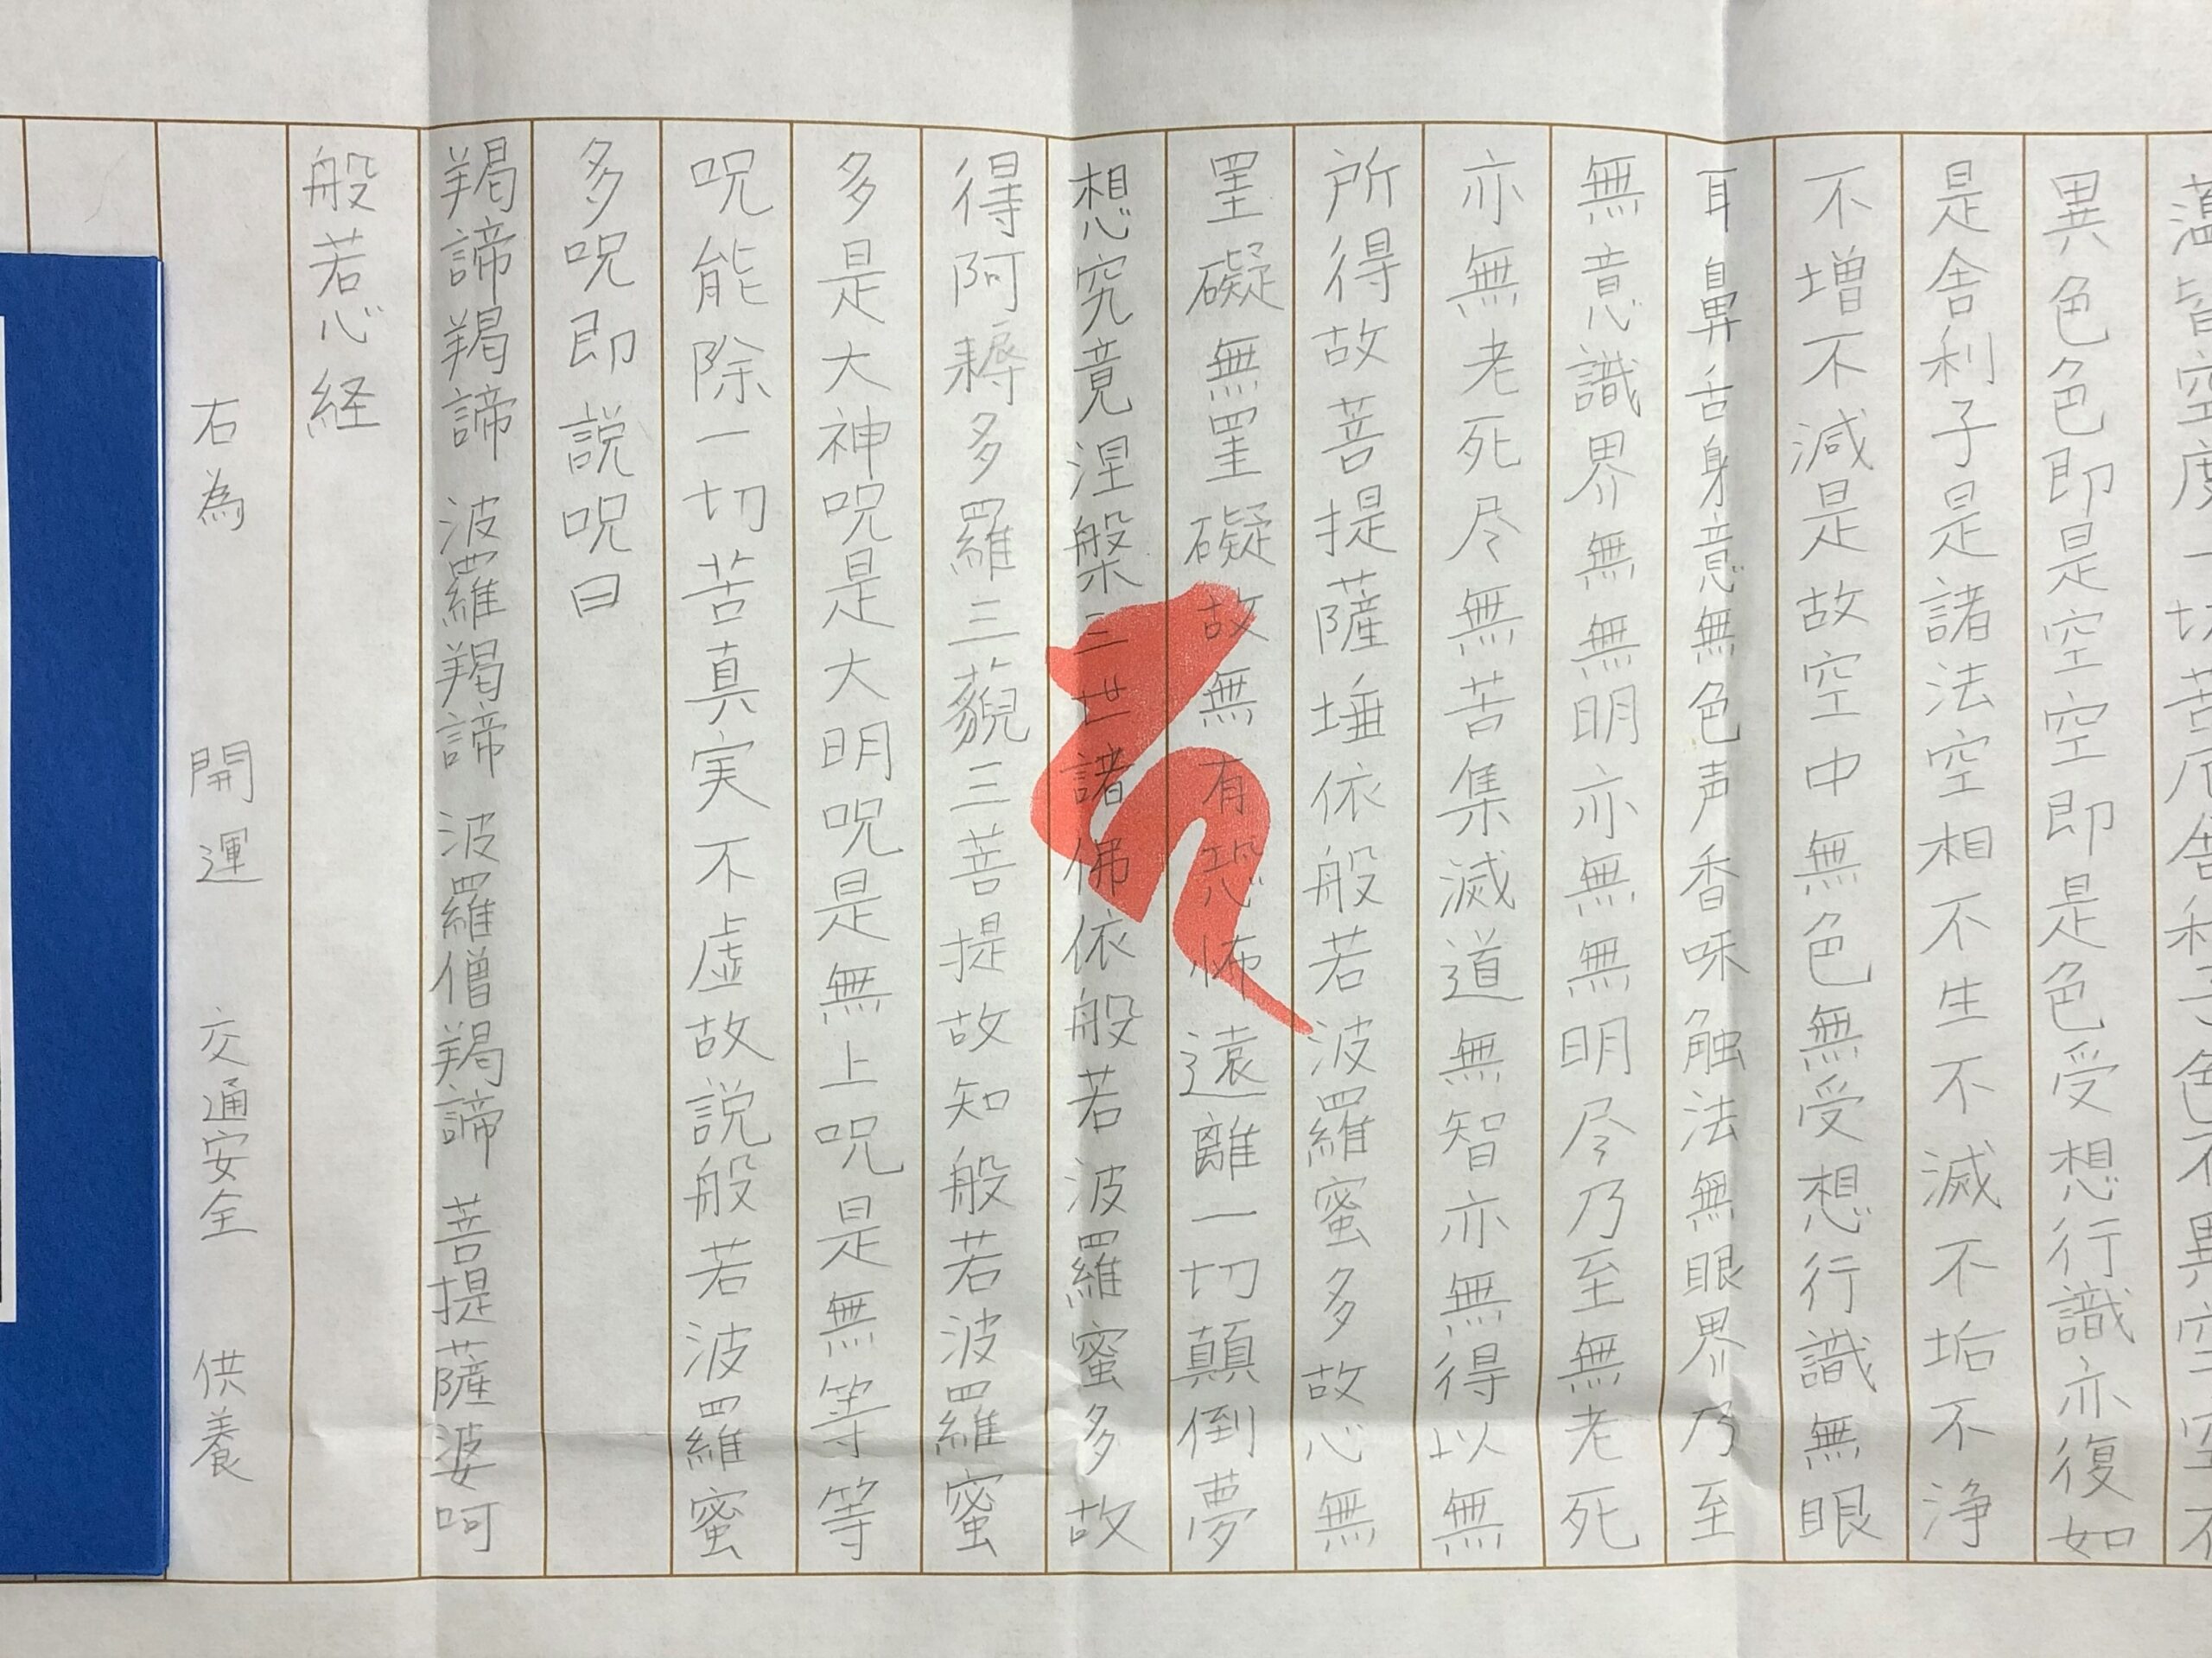 蘊皆空度一切苦厄舎利子色不異空空不
異色色即是空空即是色受想行識亦復如
是舎利子是諸法空相不生不滅不垢不浄
不増不減是故空中無色無受想行識無眼
耳鼻舌身意無色声香味触法無眼界乃至
無意識界無無明亦無無明尽乃至無老死
亦無老死尽無苦集滅道無智亦無得以無
所得故菩提薩埵依般若波羅蜜多故心無
罣礙無罣礙故無有恐怖遠離一切顛倒夢
想究竟涅槃三世諸佛依般若波羅蜜多故
得阿耨多羅三藐三菩提故知般若波羅蜜
多是大神呪是大明呪是無上呪是無等等
呪能除一切苦真実不虚故説般若波羅蜜
多呪即説呪曰
羯諦羯諦 波羅羯諦 波羅僧羯諦 菩提薩婆呵
般若心経
右為 開運 交通安全 供養